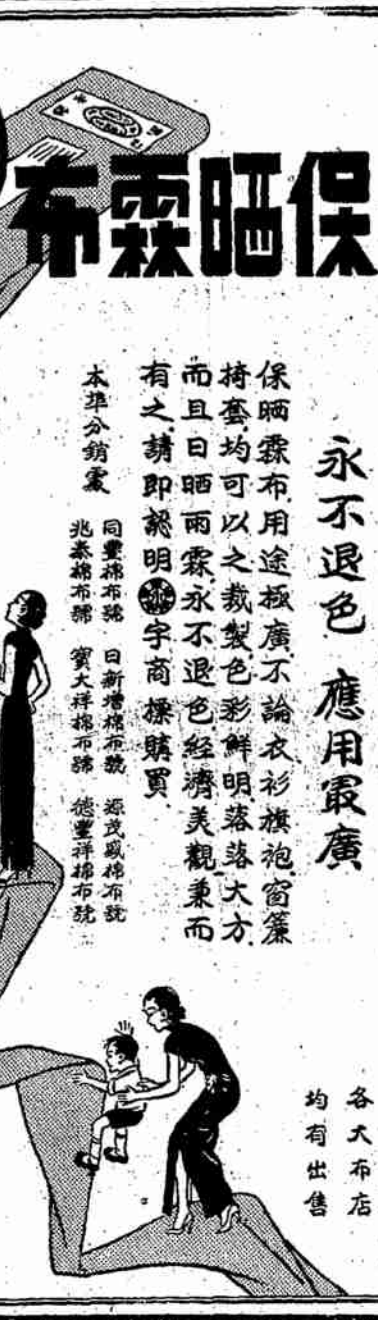 保晒霖布
永不退色 應用最廣
保晒霖布用途極廣不論衣衫旗袍窗簾
椅套均可以之裁製色彩鮮明落落大方
而且日晒雨霖永不退色經濟美觀兼而
有之請即認明 字商標購買
本埠分銷處
同豐棉布號 日新增棉布號 源茂盛棉布號
兆泰棉布號 寶大祥棉布號 德豐祥棉布號
各大布店
均有出售